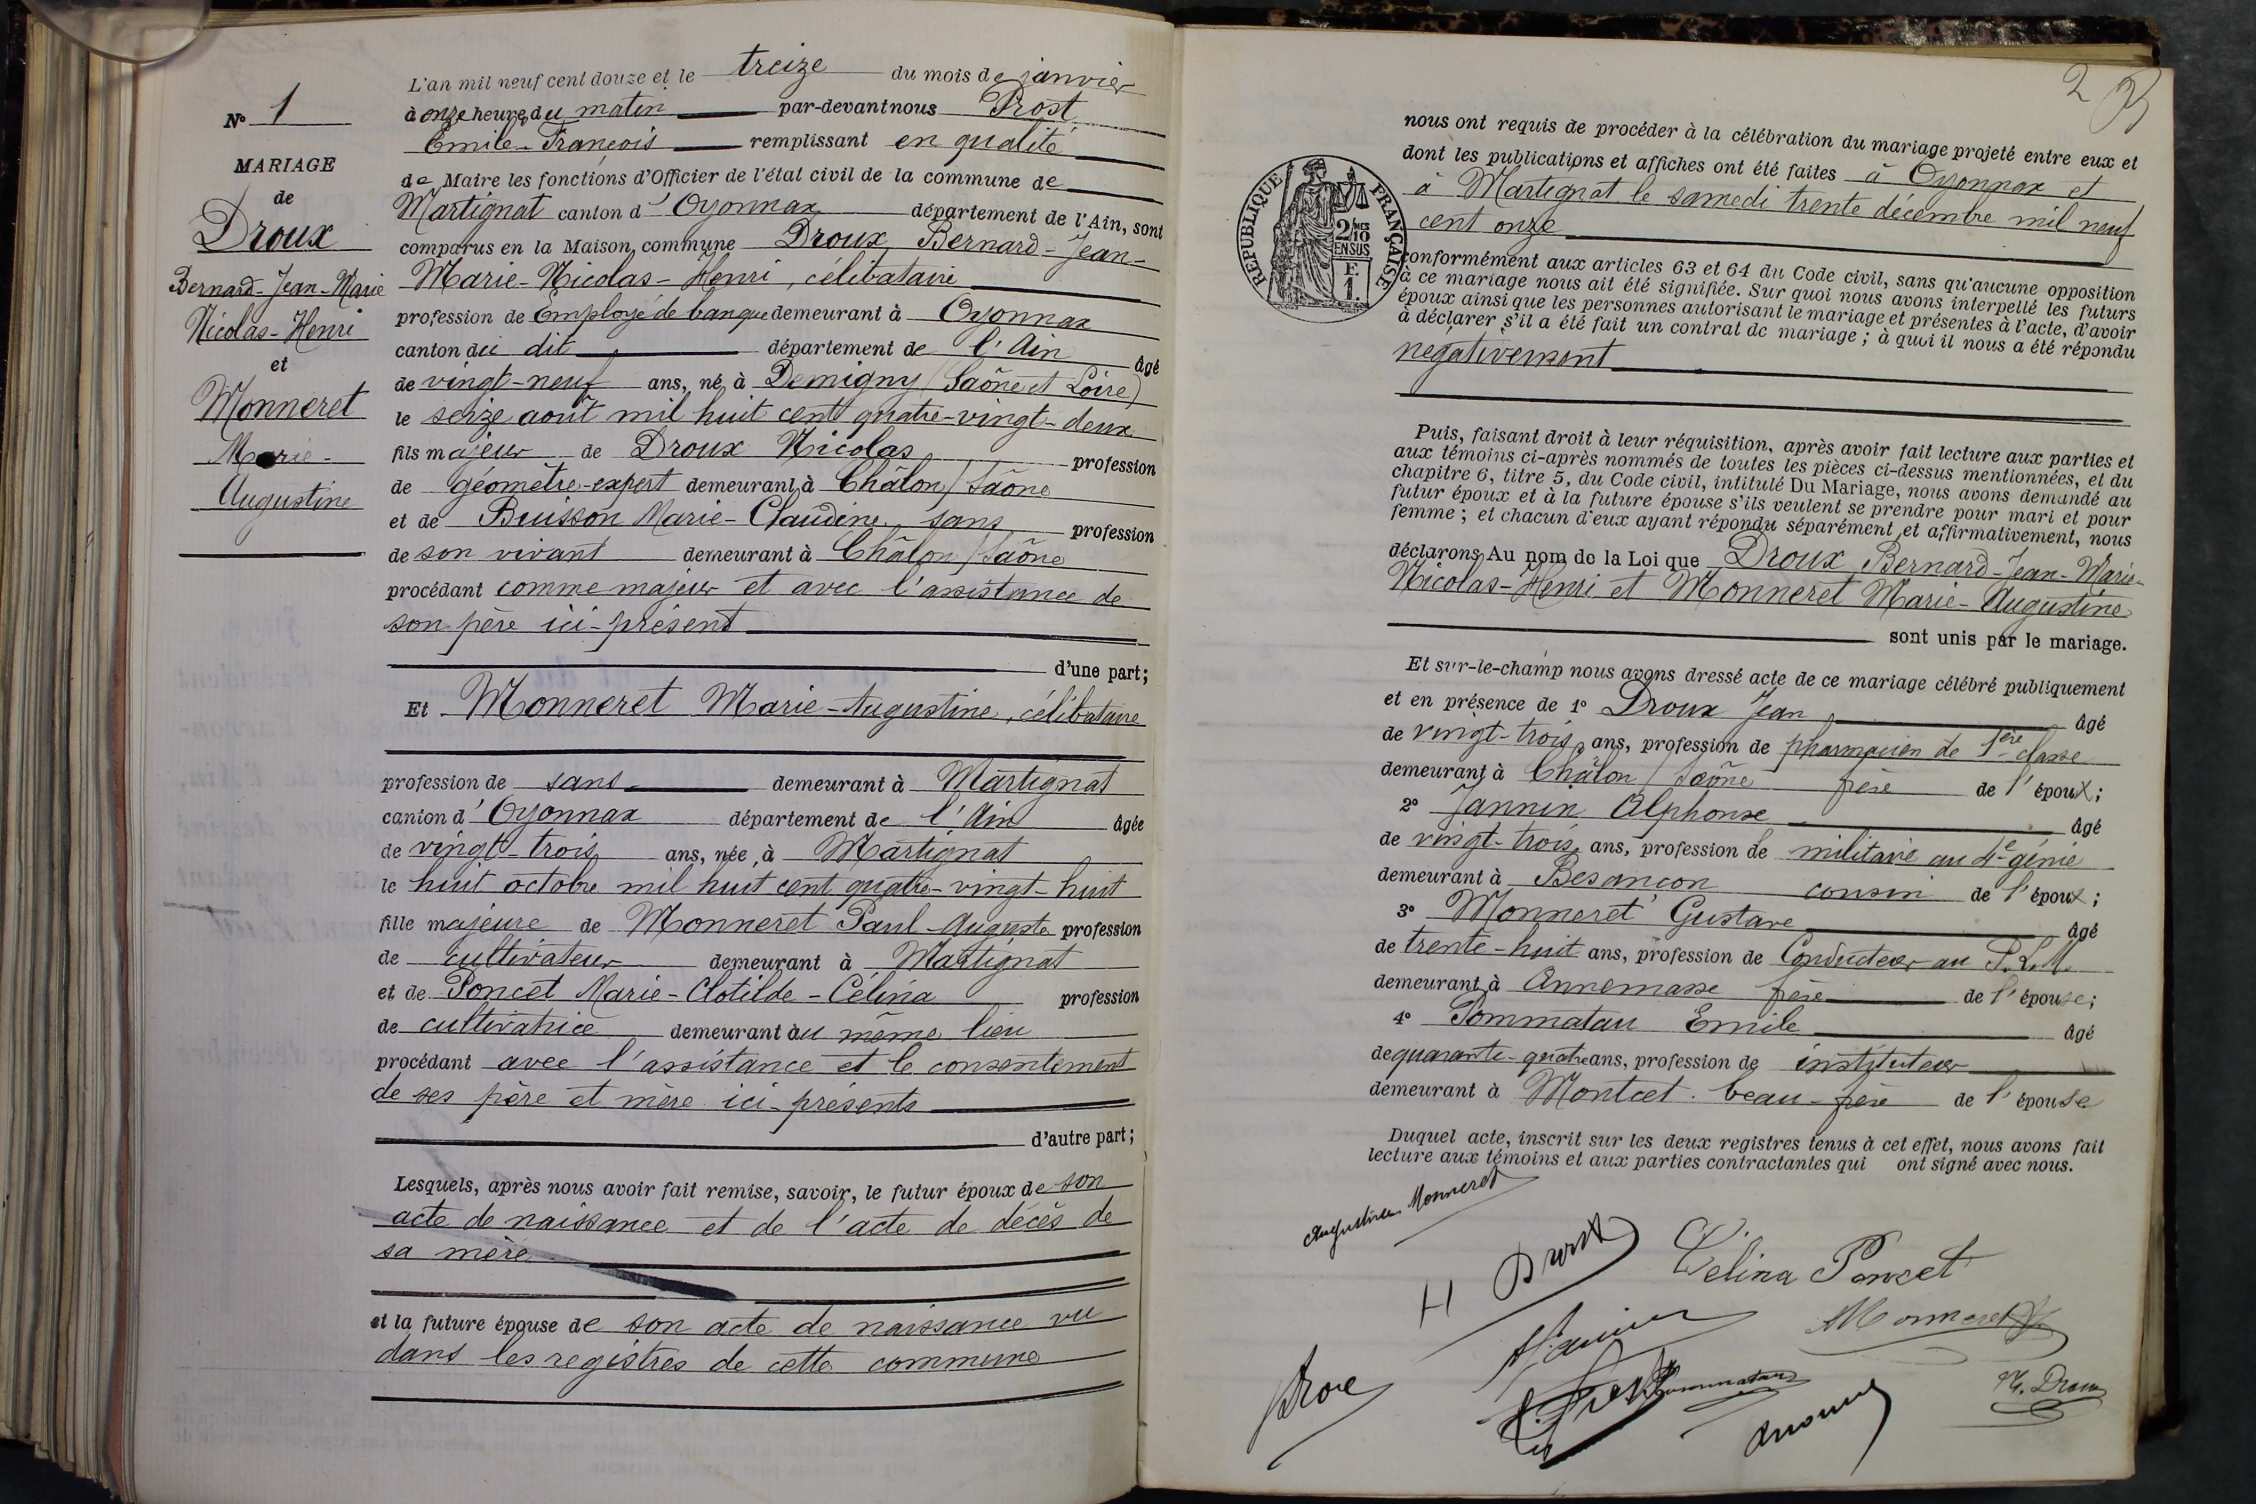 N° 1
MARIAGE
de
Droux
Bernard-Jean-Marie
Nicolas-Henri
et
Monneret
Marie-
Augustine
L'an mil neuf cent douze et le treize du mois de janvier
à onze heure du matin par-devant nous Prost
Emile-François remplissant en qualité
de Maire les fonctions d'Officier de l'état civil de la commune de
Martignat canton d'Oyonnax département de l'Ain, sont
comparus en la Maison commune Droux Bernard-Jean-
Marie-Nicolas-Henri, célibataire
profession de Employé de banque demeurant à Oyonnax
canton du dit département de l'Ain âgé
de vingt-neuf ans, né à Demigny (Saône et Loire)
le seize août mil huit cent quatre-vingt-deux
fils majeur de Droux Nicolas profession
de géomètre-expert demeurant à Châlon / Saône
et de Buisson Marie-Claudine, sans profession
de son vivant demeurant à Châlon / Saône
procédant comme majeur et avec l'assistance de
son père ici-présent
d'une part;
Et Monneret Marie-Augustine, célibataire
profession de sans demeurant à Martignat
canton d'Oyonnax département de l'Ain âgée
de vingt-trois ans, née à Martignat
le huit octobre mil huit cent quatre-vingt-huit
fille majeure de Monneret Paul-Auguste profession
de cultivateur demeurant à Martignat
et de Poncet Marie-Clotilde-Célina profession
de cultivatrice demeurant au même lieu
procédant avec l'assistance et le consentement
de ses père et mère ici-présents
d'autre part;
Lesquels, après nous avoir fait remise, savoir, le futur époux de son
acte de naissance et de l'acte de décès de
sa mère
et la future épouse de son acte de naissance vu
dans les registres de cette commune
2
nous ont requis de procéder à la célébration du mariage projeté entre eux et
dont les publications et affiches ont été faites à Oyonnax et
à Martignat le samedi trente décembre mil neuf
cent onze
RÉPUBLIQUE FRANÇAISE
2/10
EN SUS
E.
1.
conformément aux articles 63 et 64 du Code civil, sans qu'aucune opposition
à ce mariage nous ait été signifiée. Sur quoi nous avons interpellé les futurs
époux ainsi que les personnes autorisant le mariage et présentes à l'acte, d'avoir
à déclarer s'il a été fait un contrat de mariage; à quoi il nous a été répondu
négativement
Puis, faisant droit à leur réquisition, après avoir fait lecture aux parties et
aux témoins ci-après nommés de toutes les pièces ci-dessus mentionnées, et du
chapitre 6, titre 5, du Code civil, intitulé Du Mariage, nous avons demandé au
futur époux et à la future épouse s'ils veulent se prendre pour mari et pour
femme; et chacun d'eux ayant répondu séparément et affirmativement, nous
déclarons Au nom de la Loi que Droux Bernard-Jean-Marie-
Nicolas-Henri et Monneret Marie-Augustine
sont unis par le mariage.
Et sur-le-champ nous avons dressé acte de ce mariage célébré publiquement
et en présence de 1° Droux Jean âgé
de vingt-trois ans, profession de pharmacien de 1ère classe
demeurant à Châlon / Saône frère de l'époux;
2° Jannin Alphonse âgé
de vingt-trois ans, profession de militaire au 4e génie
demeurant à Besançon cousin de l'époux;
3° Monneret Gustave âgé
de trente-huit ans, profession de Conducteur au P.L.M.
demeurant à Annemasse frère de l'épouse;
4° Pommatau Emile âgé
de quarante-quatre ans, profession de instituteur
demeurant à Montcet beau-frère de l'épouse
Duquel acte, inscrit sur les deux registres tenus à cet effet, nous avons fait
lecture aux témoins et aux parties contractantes qui ont signé avec nous.
Augustine Monneret
H Droux
Célina Poncet
A Jannin
Monneret
E. Prost
Pommatau
N. Droux